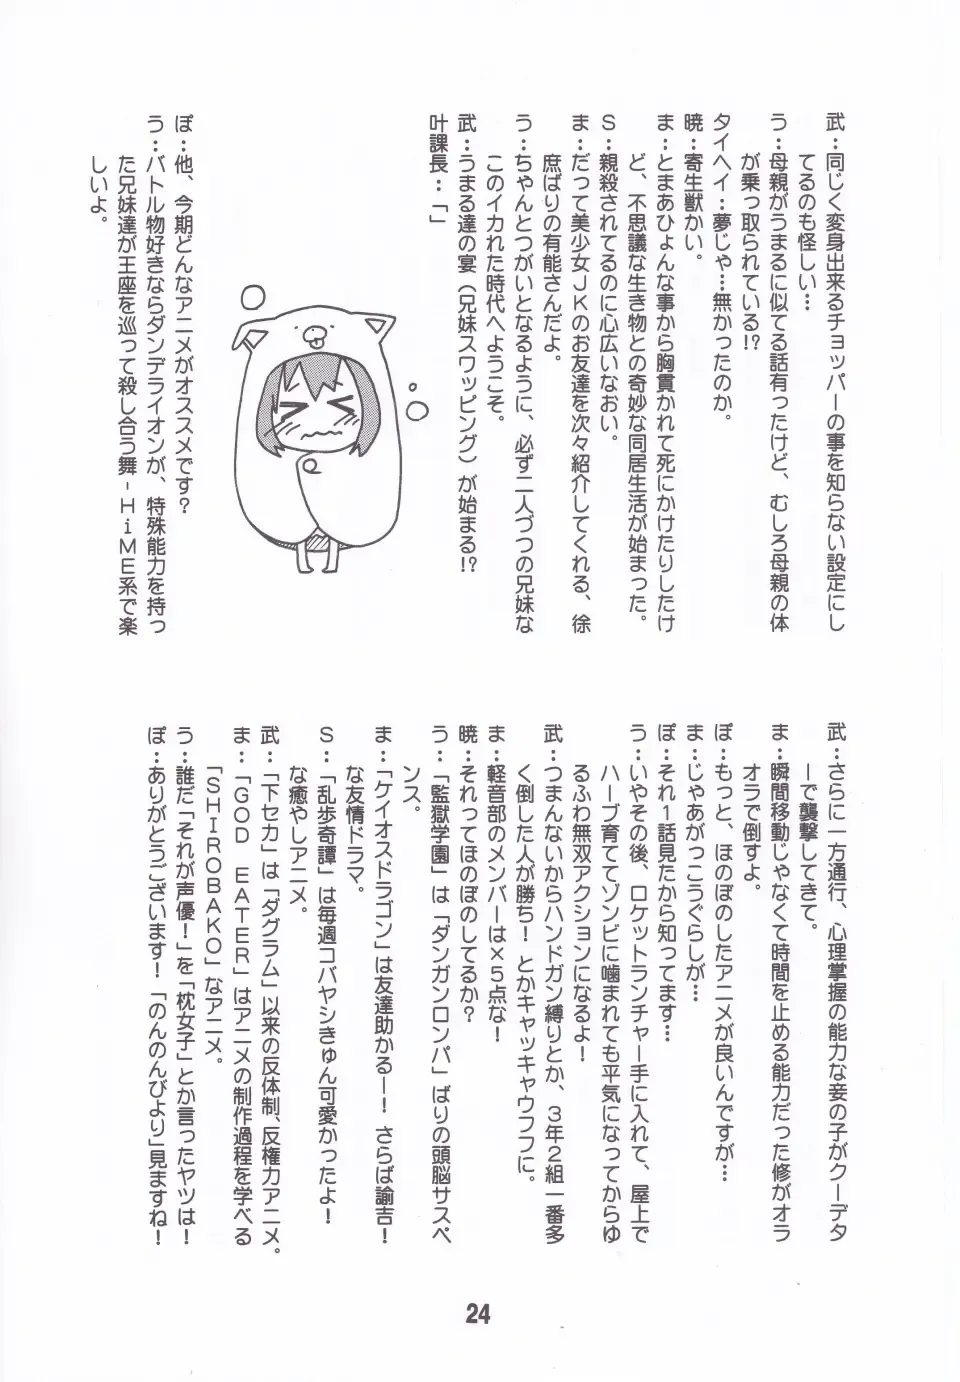 武：同じく変身出来るチョッパーの事を知らない設定にし
てるのも怪しい…
う：母親がうまるに似てる話有ったけど、むしろ母親の体
が乗っ取られている!?
タイヘイ：夢じゃ…無かったのか。
暁：寄生獣かい。
ま：とまあひょんな事から胸貫かれて死にかけたりしたけ
ど、不思議な生き物との奇妙な同居生活が始まった。
S：親殺されてるのに心広いなおい。
ま：だって美少女JKのお友達を次々紹介してくれる、徐
庶ばりの有能さんだよ。
う：ちゃんとつがいとなるように、必ず二人づつの兄妹な
このイカれた時代へようこそ。
武：うまる達の宴（兄妹スワッピング）が始まる!?
叶課長：「」
ぽ：他、今期どんなアニメがオススメです?
う：バトル物好きならダンデライオンが、特殊能力を持っ
た兄妹達が王座を巡って殺し合う舞-HiME系で楽
しいよ。
武：さらに一方通行、心理掌握の能力な妾の子がクーデタ
ーで襲撃してきて。
ま：瞬間移動じゃなくて時間を止める能力だった修がオラ
オラで倒すよ。
ぽ：もっと、ほのぼのしたアニメが良いんですが…
ま：じゃあがっこうぐらしが…
ぽ：それ1話見たから知ってます…
う：いやその後、ロケットランチャー手に入れて、屋上で
ハーブ育ててゾンビに噛まれても平気になってからゆ
るふわ無双アクションになるよ!
武：つまんないからハンドガン縛りとか、3年2組一番多
く倒した人が勝ち! とかキャッキャウフフに。
ま：軽音部のメンバーは×5点な!
暁：それってほのぼのしてるか?
う：「監獄学園」は「ダンガンロンパ」ばりの頭脳サスペ
ンス。
ま：「ケイオスドラゴン」は友達助かるー! さらば諭吉!
な友情ドラマ。
S：「乱歩奇譚」は毎週コバヤシきゅん可愛かったよ!
な癒やしアニメ。
武：「下セカ」は「ダグラム」以来の反体制、反権力アニメ。
ま：「GOD EATER」はアニメの制作過程を学べる
「SHIROBAKO」なアニメ。
う：誰だ「それが声優!」を「枕女子」とか言ったヤツは!
ぽ：ありがとうございます! 「のんのんびより」見ますね!
24